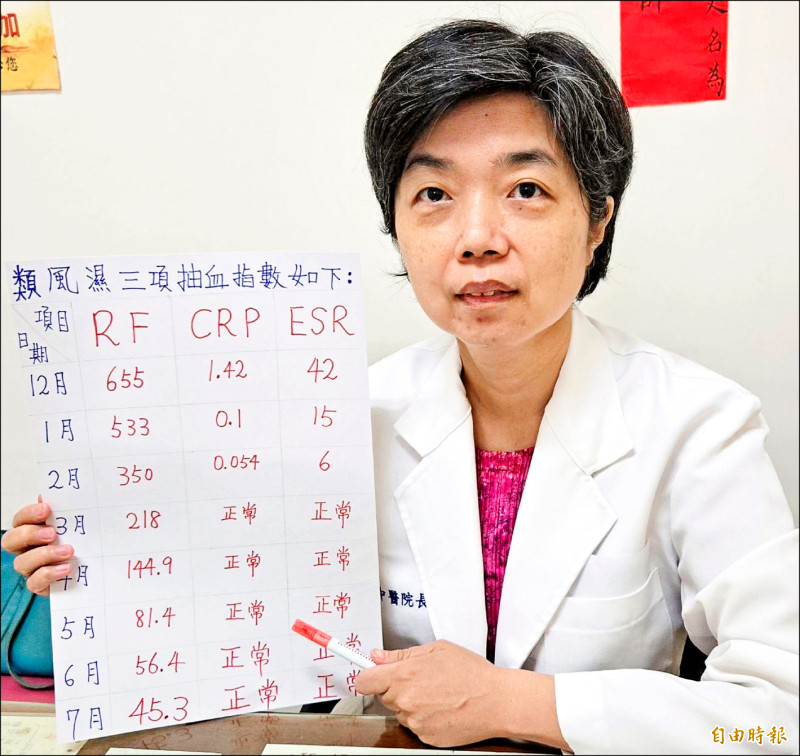 加
您
大名為
師
類風濕三項抽血指數如下:
項目 RF CRP ESR
日期
12月 655 1.42 42
1月 533 0.1 15
2月 350 0.054 6
3月 218 正常 正常
月 144.9 正常 正常
5月 81.4 正常 正常
6月 56.4 正常 正常
7月 45.3 正常 正常
中醫院長
自由時報